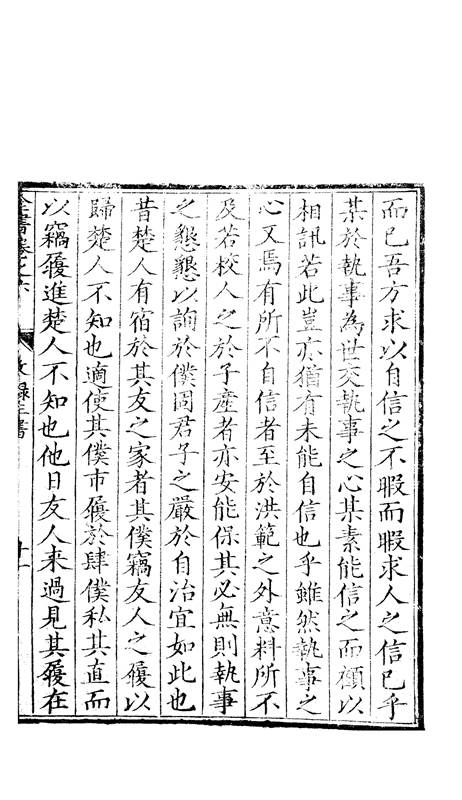 而已吾方求以自信之不暇而暇求人之信已乎
某於執事為世交執事之心某素能信之而顧以
相訊若此豈亦猶有未能自信也乎雖然執事之
心又焉有所不自信者至於洪範之外意料所不
及若校人之於子產者亦安能保其必無則執事
之懇懇以詢於僕固君子之嚴於自治宜如此也
昔楚人有宿於其友之家者其僕竊友人之履以
歸楚人不知也適使其僕市履於肆僕私其直而
以竊履進楚人不知也他日友人来過見其履在
全書卷之六
文錄三書
十一